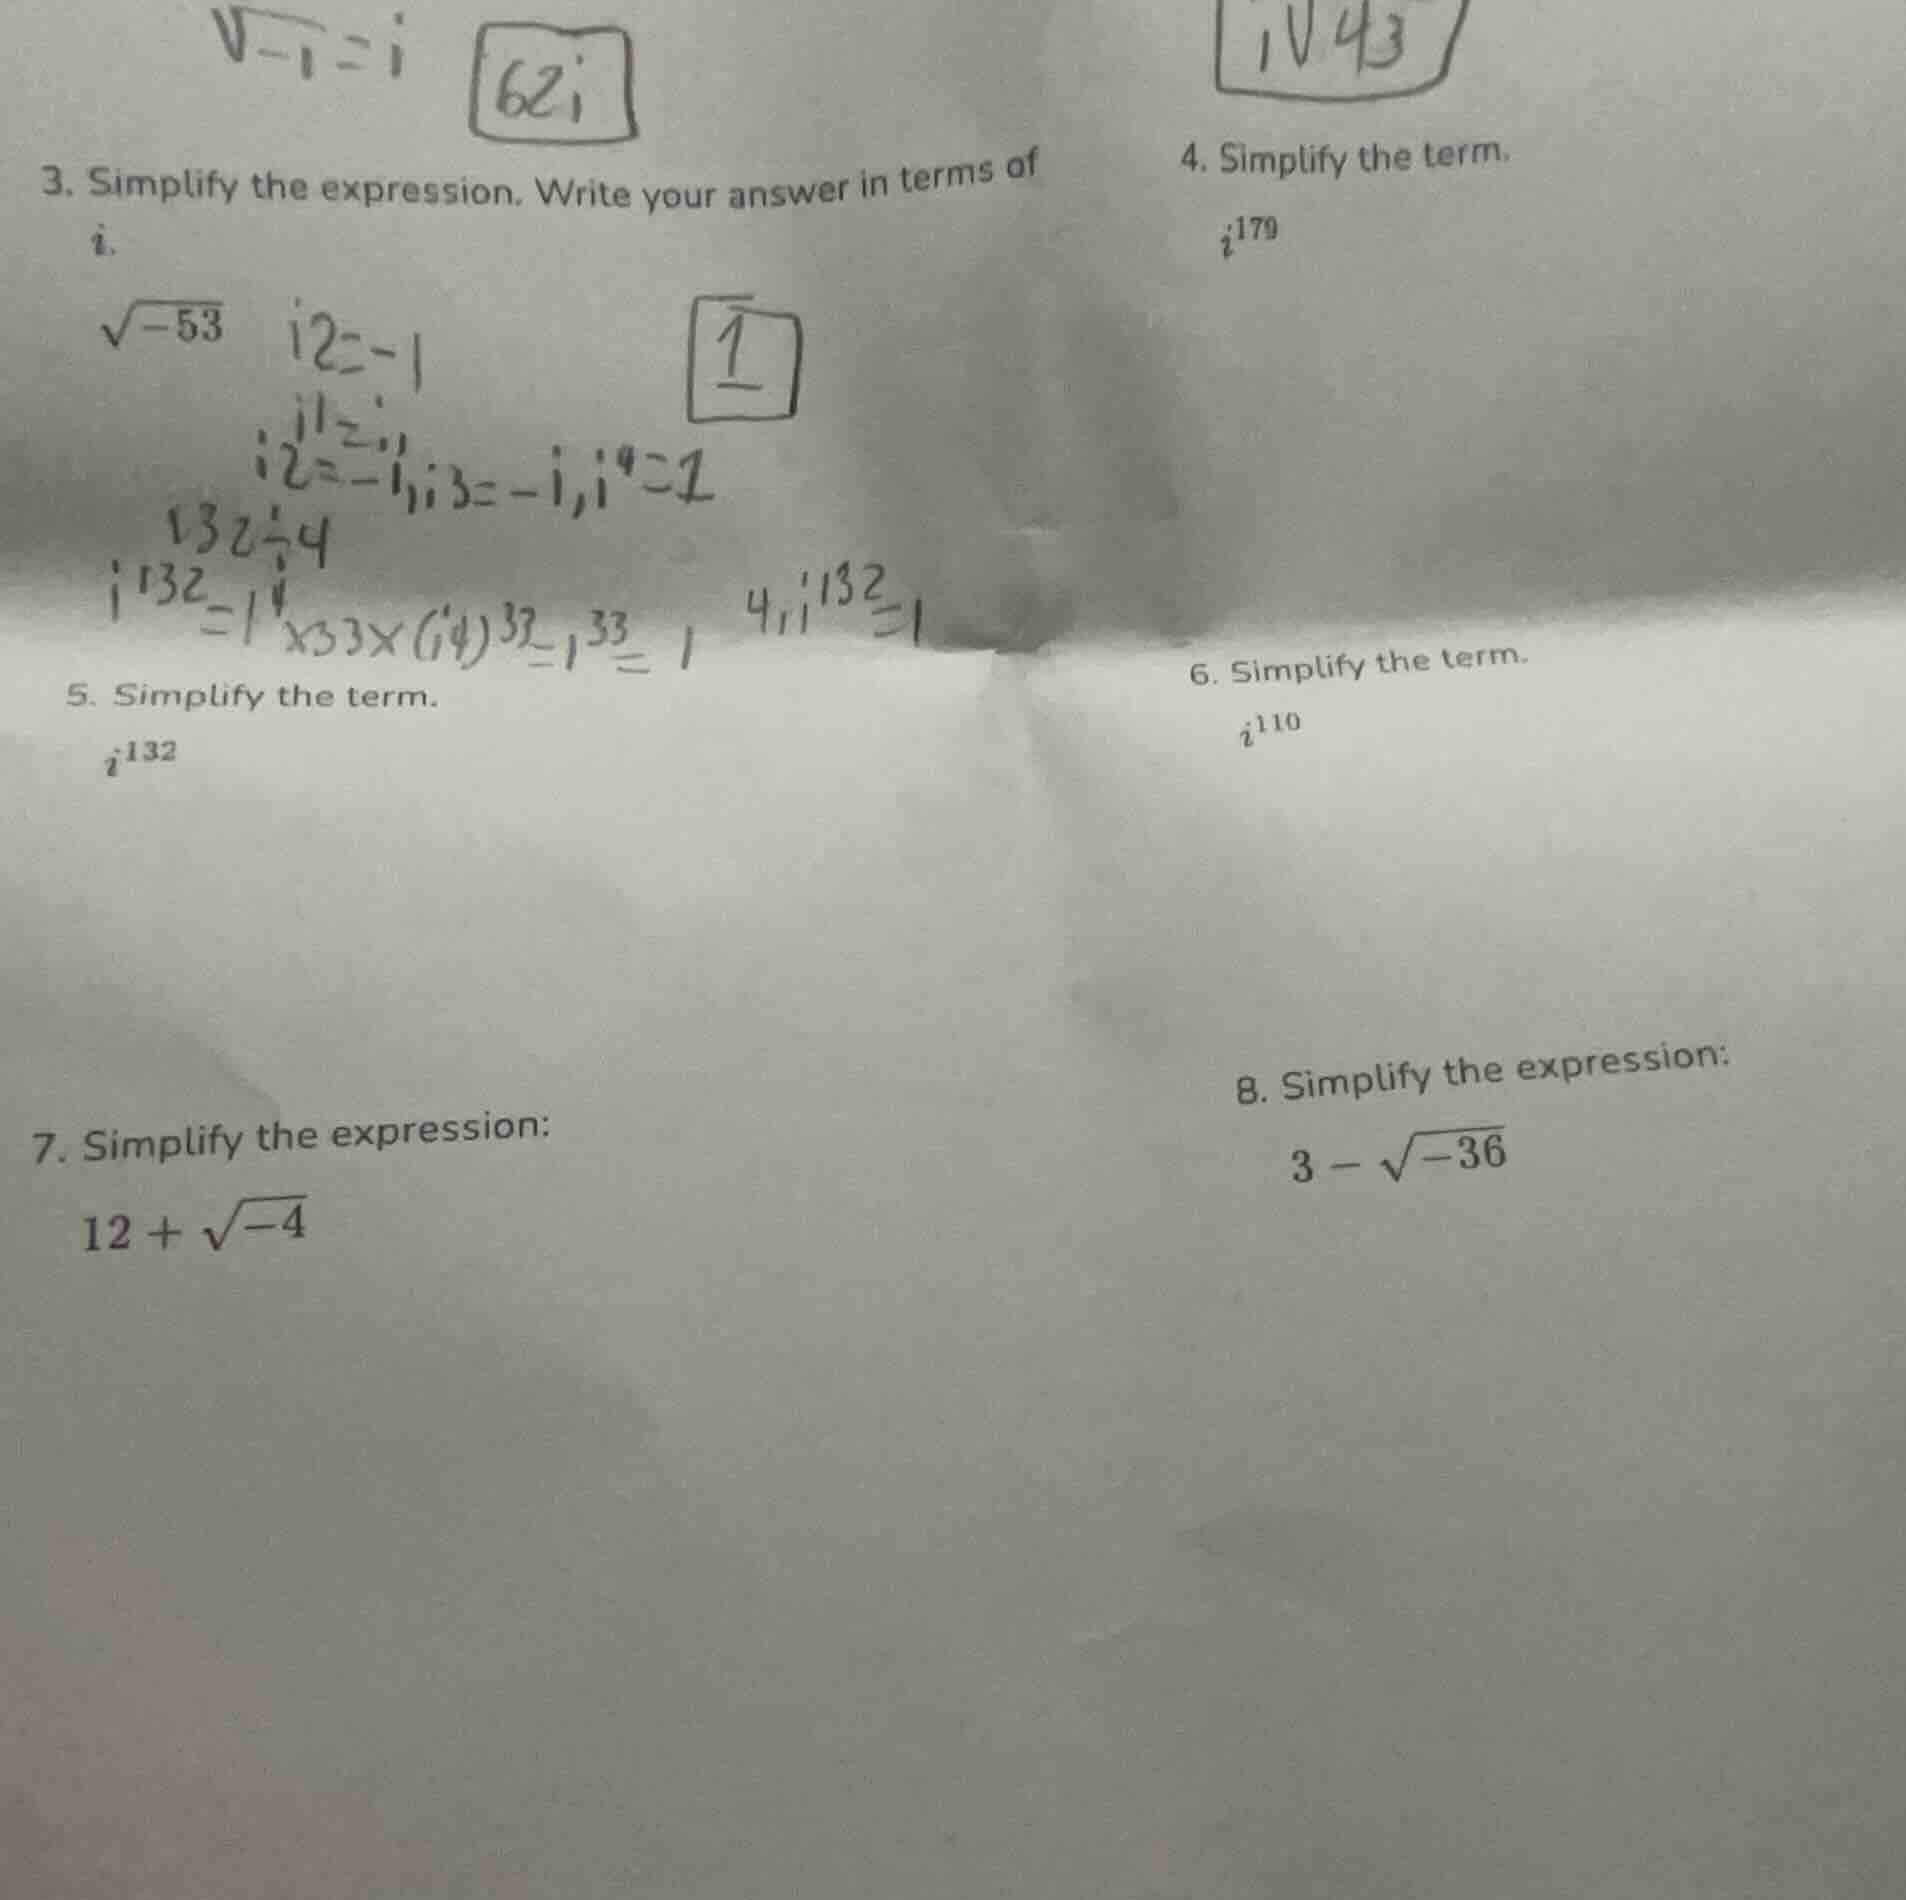 √-1 = i
62i
i√43
3. Simplify the expression. Write your answer in terms of
i.
√-53
i2=-1
1
i1=i,
i2=-1,i3=-i,i⁴=1
132÷4
i¹³²=i⁴x33x(i4)³³=1³³=1
4,i¹³²=1
4. Simplify the term.
i¹⁷⁹
5. Simplify the term.
i¹³²
6. Simplify the term.
i¹¹⁰
7. Simplify the expression:
12 + √-4
8. Simplify the expression:
3 - √-36